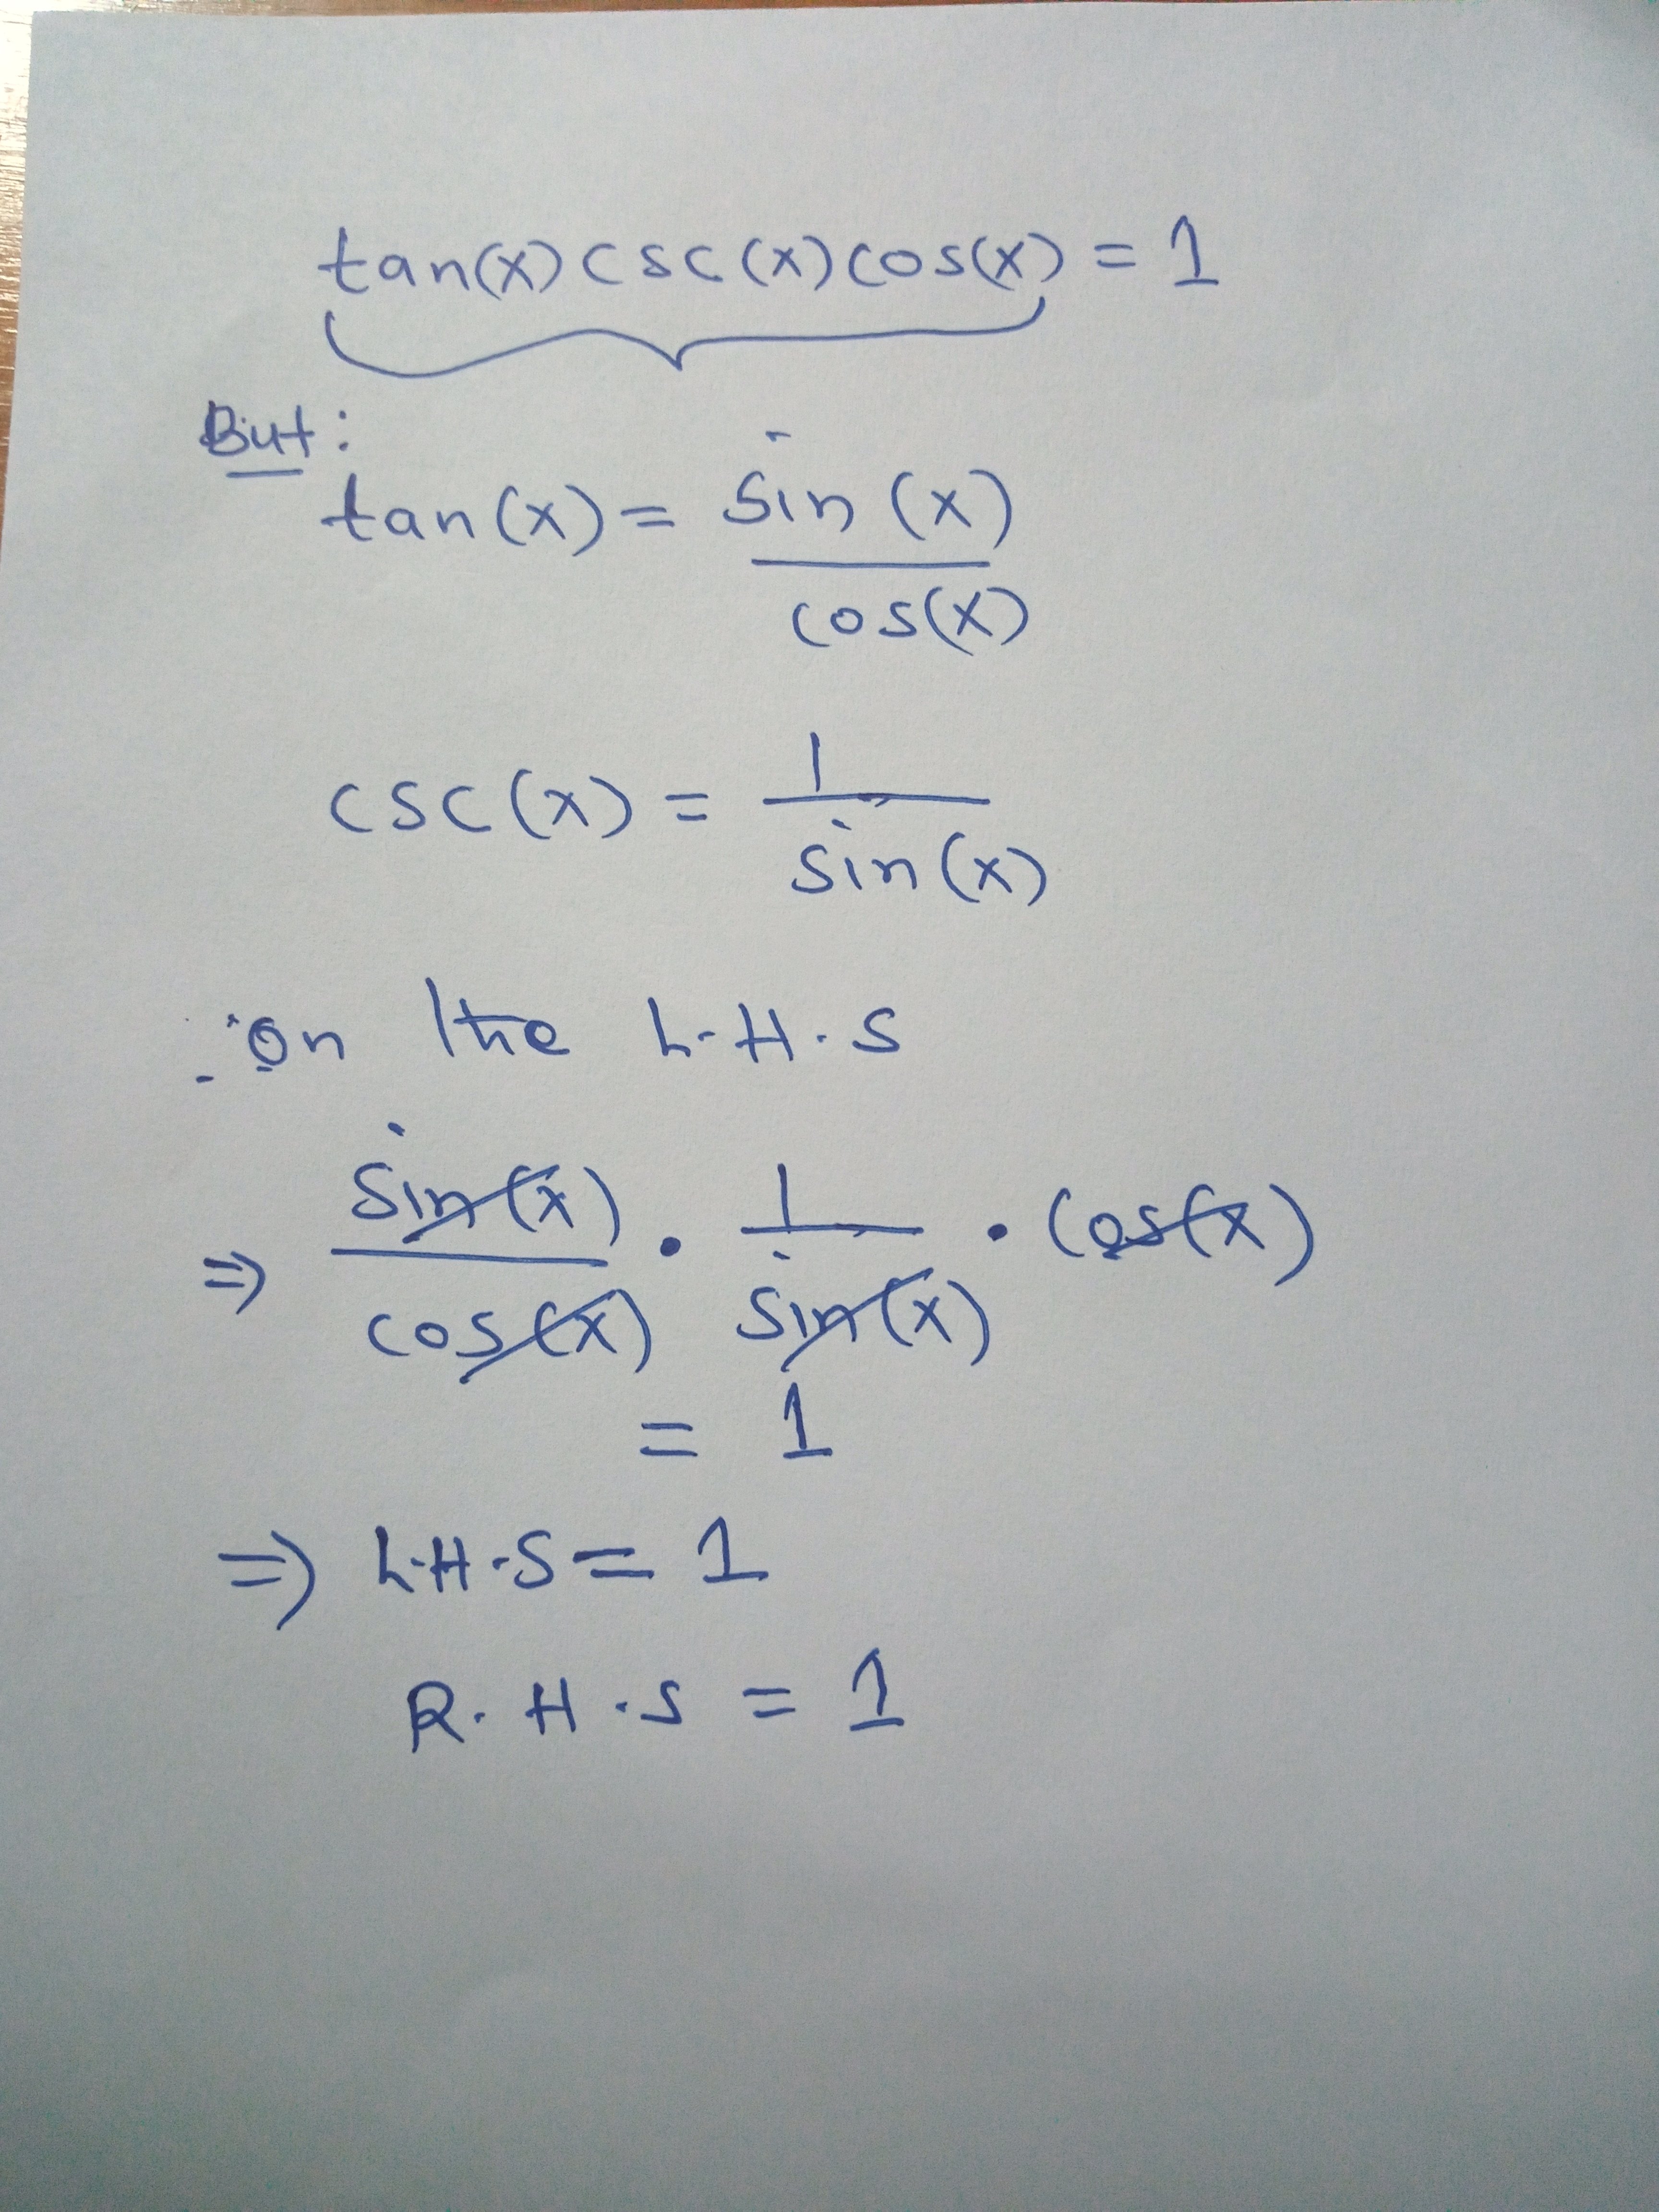 tan(x)csc(x)cos(x) = 1
But:
tan(x) = sin(x)
cos(x)
csc(x) = 1
sin(x)
∴ on the L.H.S
⇒ sin(x) • 1 • cos(x)
cos(x) sin(x)
= 1
⇒ L.H.S = 1
R.H.S = 1